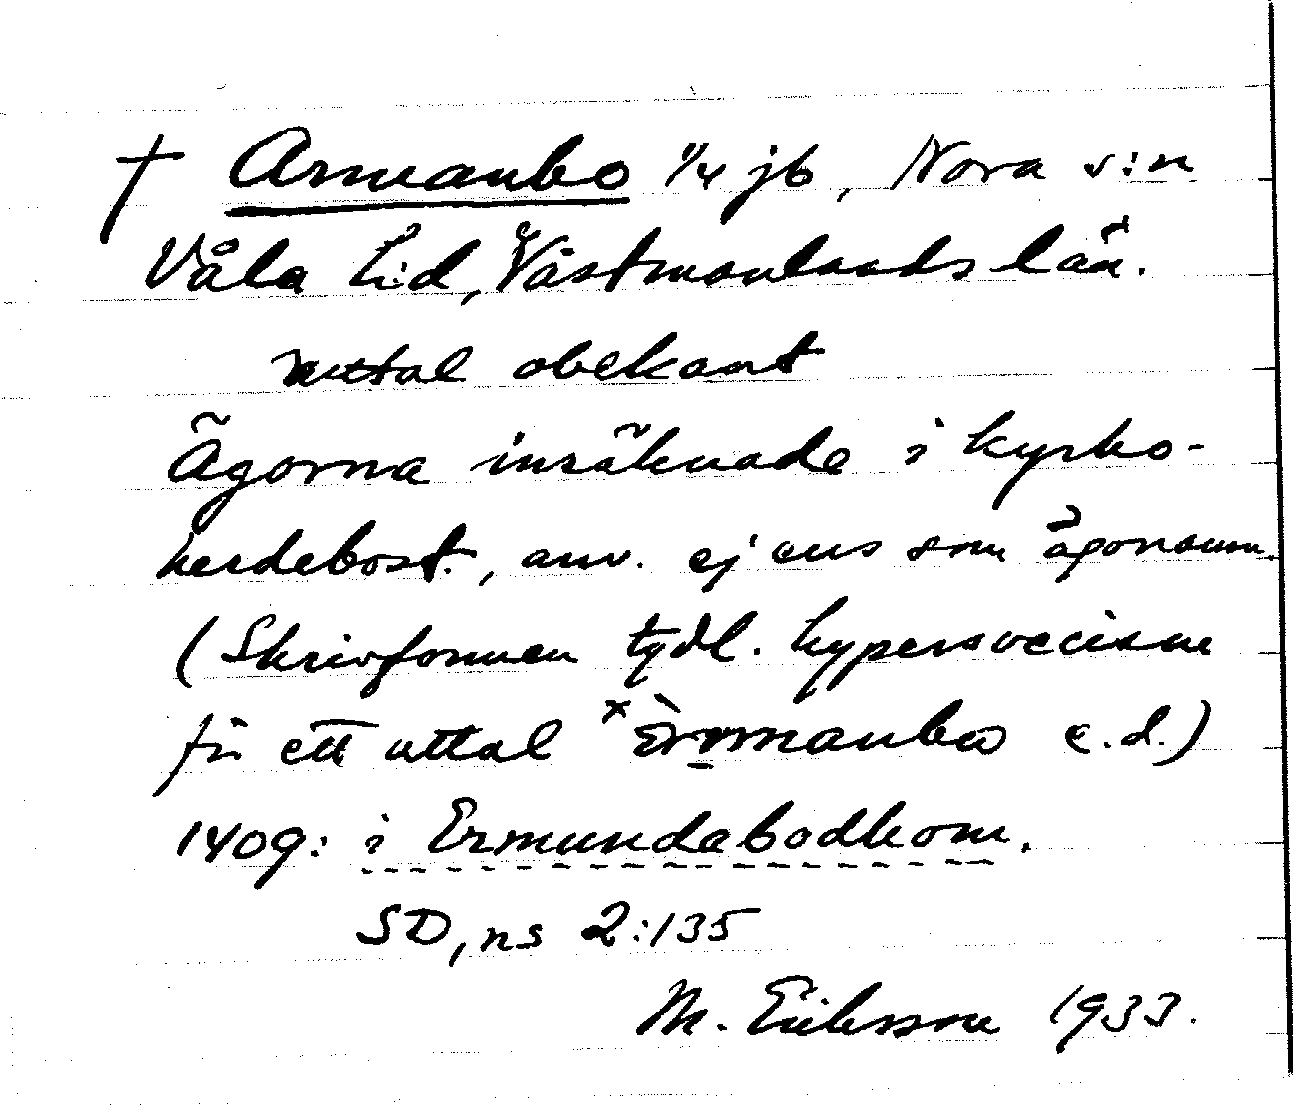 † Armanbo 1/4 jb, Nora s:n
Våla h:d, Västmanlands län.
uttal obekant
Ägorna insäknade i kyrko-
herdebost., anv. ej ens som ägonamn.
(Skrivformen tydl. hypersvecism
för ett uttal ˣÈrmanbo e.d.)
1409: i Ermundabodhom.
SD, ns 2:135
M. Eriksson 1933.